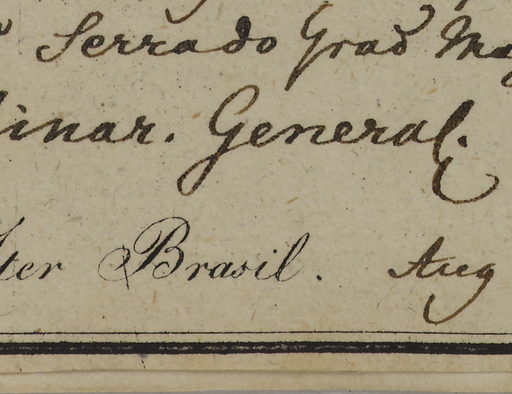 Serrado Grad May
inar. General.
ter Brasil. Aug